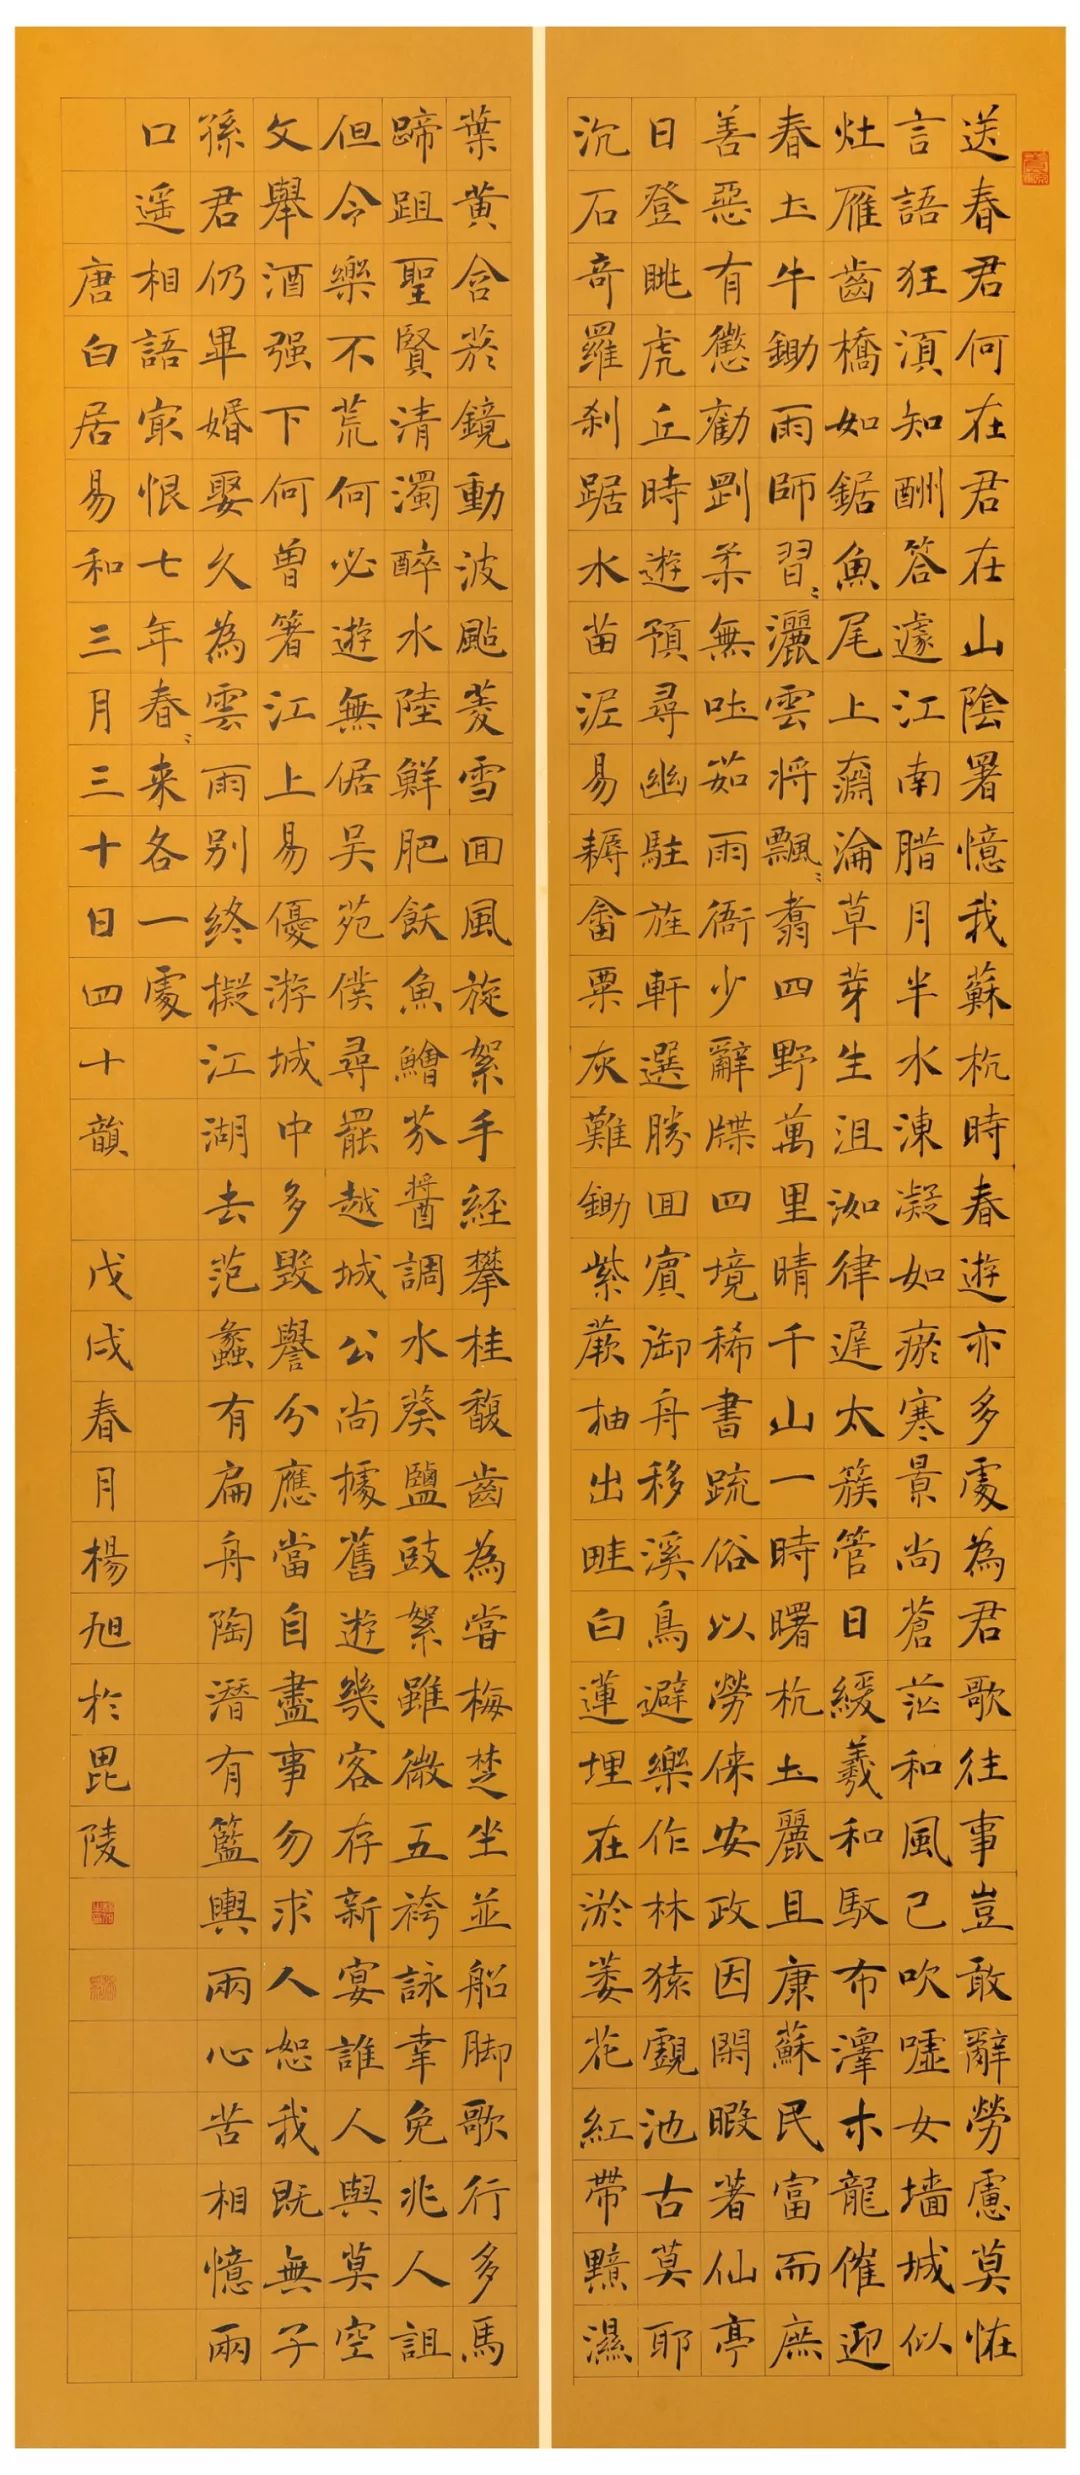 送春君何在君在山陰署憶我蘇杭時春遊亦多處為君歌往事豈敢辭勞慮莫怪
言語狂須知酬答遽江南臘月半水凍凝如瘀寒景尚蒼茫和風已吹噓女墻城似
灶雁齒橋如鋸魚尾上奫淪草芽生沮洳律遲太簇管日緩羲和馭布澤木龍催迎
春土牛鋤雨師習〻灑雲将飄〻翥四野萬里晴千山一時曙杭土麗且康蘇民富而庶
善惡有懲勸剛柔無吐茹雨衙少辭牒四境稀書疏俗以勞倈安政因閑暇著仙亭
日登眺虎丘時遊預尋幽駐旌軒選勝囬賓御舟移溪鳥避樂作林猿覷池古莫耶
沉石奇羅刹踞水苗泥易耨畬粟灰難鋤紫蕨抽出畦白蓮埋在淤萎花紅帶黯濕
葉黄含菸鏡動波颭菱雪囬風旋絮手經攀桂馥齒為嘗梅楚坐並船脚歌行多馬
蹄跙聖賢清濁醉水陸鮮肥飫魚鱠芥醬調水葵鹽豉絮雖微五袴詠幸免兆人詛
但令樂不荒何必遊無倨吴苑僕尋罷越城公尚據舊遊幾客存新宴誰人與莫空
文舉酒强下何曽箸江上易優游城中多毁譽分應當自盡事勿求人恕我既無子
孫君仍畢婚娶久為雲雨别終擬江湖去范蠡有扁舟陶潛有籃輿兩心苦相憶兩
口遥相語㝡恨七年春〻来各一處
唐白居易和三月三十日四十韻 戊戌春月楊旭於毘陵